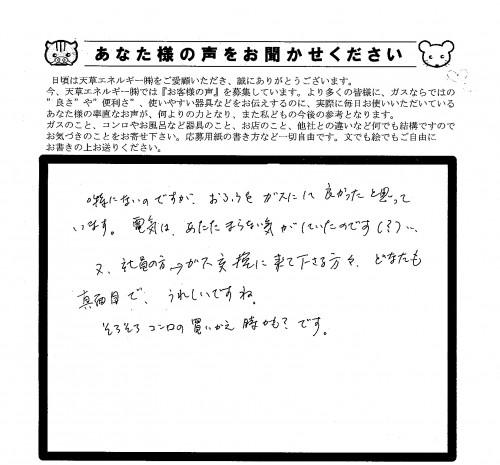 あなた様の声をお聞かせください
日頃は天草エネルギー㈱をご愛顧いただき、誠にありがとうございます。
今、天草エネルギー㈱では『お客様の声』を募集しています。より多くの皆様に、ガスならではの
”良さ”や”便利さ”、使いやすい器具などをお伝えするのに、実際に毎日お使いいただいている
あなた様の率直なお声が、何よりの力となり、また私どもの今後の参考となります。
ガスのこと、コンロやお風呂など器具のこと、お店のこと、他社との違いなど何でも結構ですので
お気づきのことをお寄せ下さい。応募用紙の書き方など一切自由です。文でも絵でもご自由に
お書きの上お送りください。
特にないのですが、おふろをガスにして良かったと思って
います。電気は、あたたまらない気がしていたのです(?)…
又、社員の方→ガス交換に来て下さる方々、どなたも
真面目で、うれしいですね。
そろそろコンロの買いかえ時かも?です。